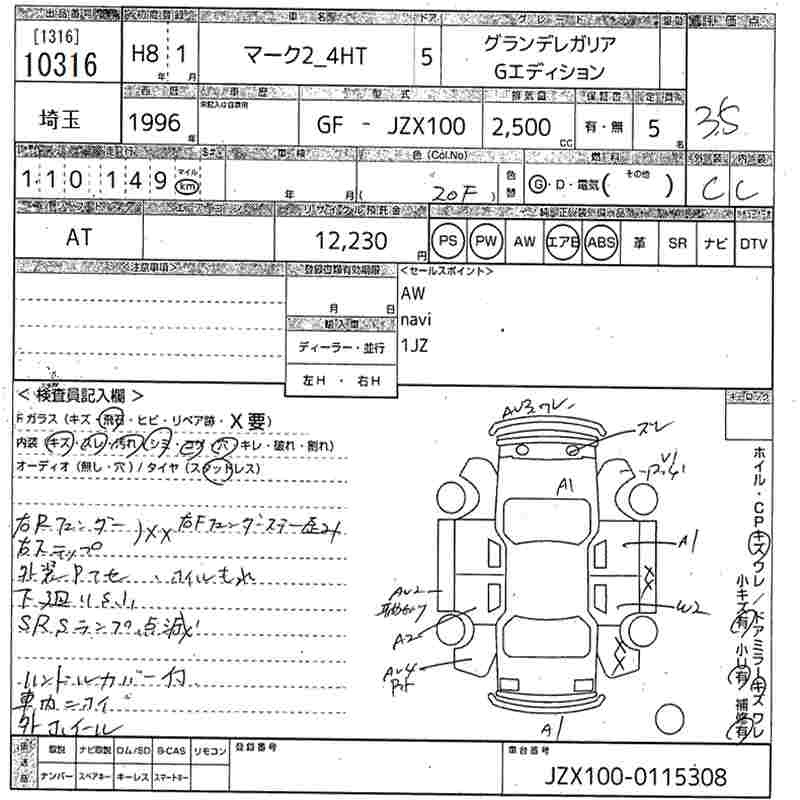 出品番号 初度登録 車名 ドア グレード 評価点
[1316]
10316 H8 1 マーク2_4HT 5 グランデレガリア
Gエディション
年 月
西暦 車歴 型式 排気量 保証書 定員 3.5
埼玉 1996 年 GF - JZX100 2,500 CC 有・無 5 名
走行 車検 色(Col.No) 燃料 外装 内装
110,149 マイル km 年 月 ( 20F ) 色替 G・D・電気( その他 ) C C
エアコン リサイクル預託金
AT 12,230 円 PS PW AW エアB ABS 革 SR ナビ DTV
<注意事項> 登録書類有効期限 <セールスポイント>
月 日 AW
navi
輸入車 1JZ
ディーラー・並行
左H ・ 右H
< 検査員記入欄 >
Fガラス(キズ・飛石・ヒビ・リペア跡・X要)
内装(キズ・スレ・汚れ・シミ・コゲ・穴・キレ・破れ・割れ)
オーディオ(無し・穴)/タイヤ(スタッドレス)
右Rフェンダー )XX 右Fフェンダーステー歪み
右ステップ
下廻りS.U.
SRSランプ点滅
ハンドルカバー付
車内ニオイ
外ホイール
AU3ワレ
スレ
A1
U1
A1
XX
W2
AU2
A2
AU4
XX
A1
ホイル・CPキズワレ/ドアミラーキズワレ
小キズ有 小U有 補修有
取説 ナビ取説 ロム/SD B-CAS リモコン 登録番号 車台番号
ナンバー スペアキー キーレス スマートキー JZX100-0115308